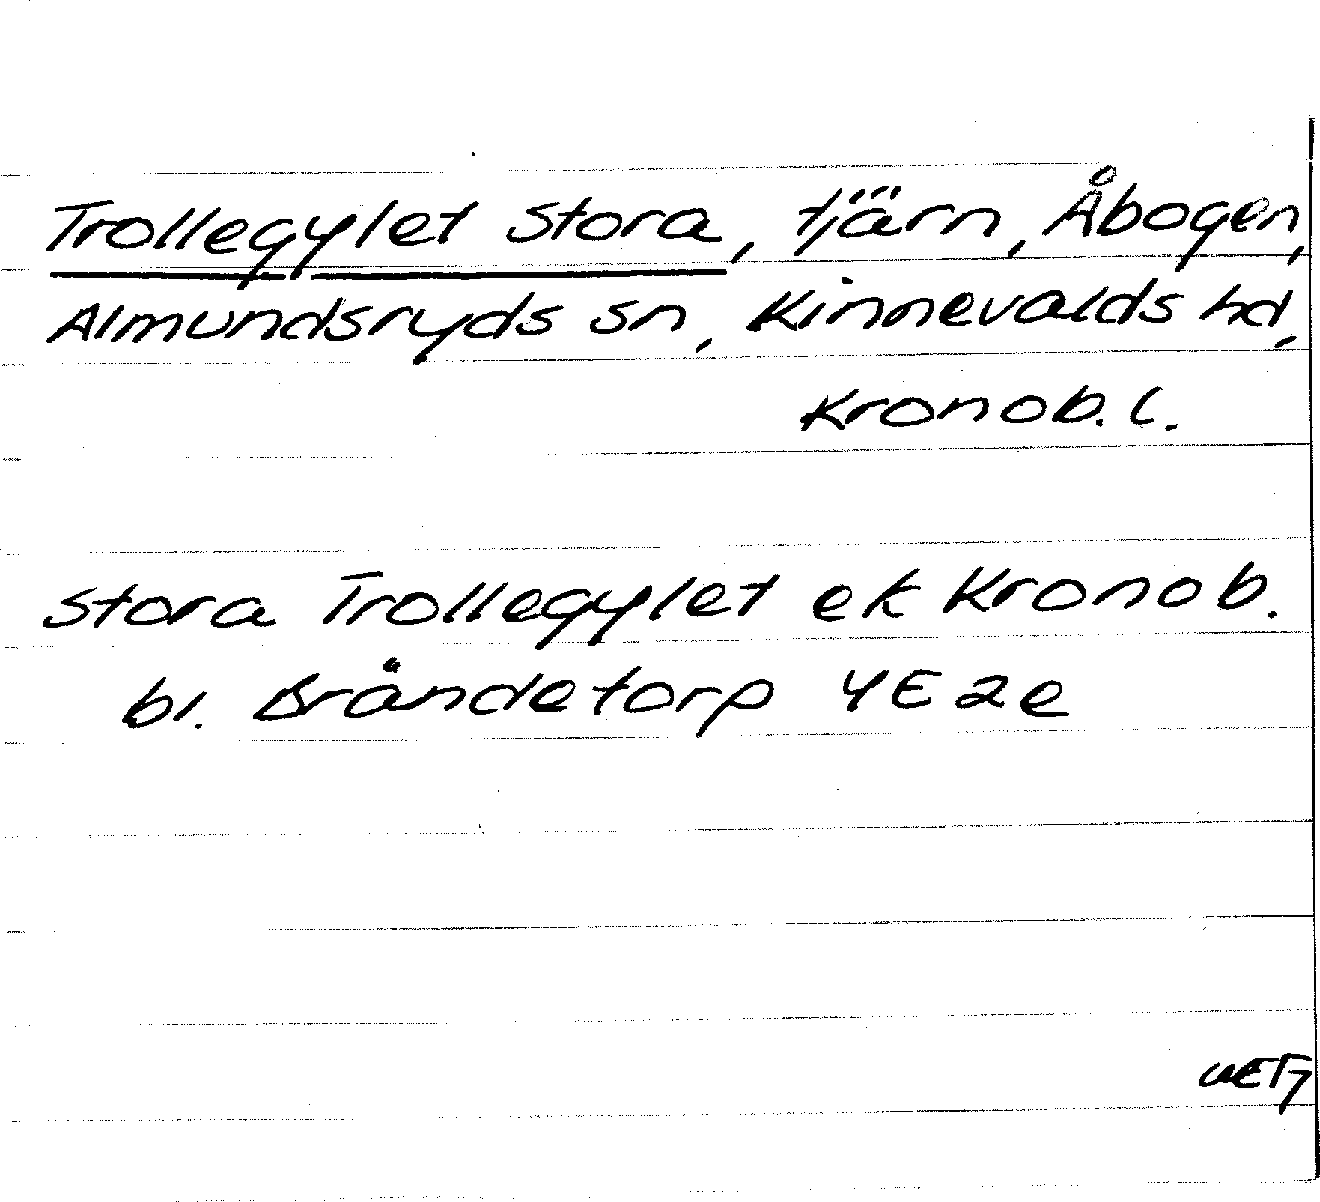 Trollegylet Stora, tjärn, Åbogen,
Almundsryds sn, Kinnevalds hd,
Kronob. l.
Stora Trollegylet ek Kronob.
bl. Bråndetorp 4E2e